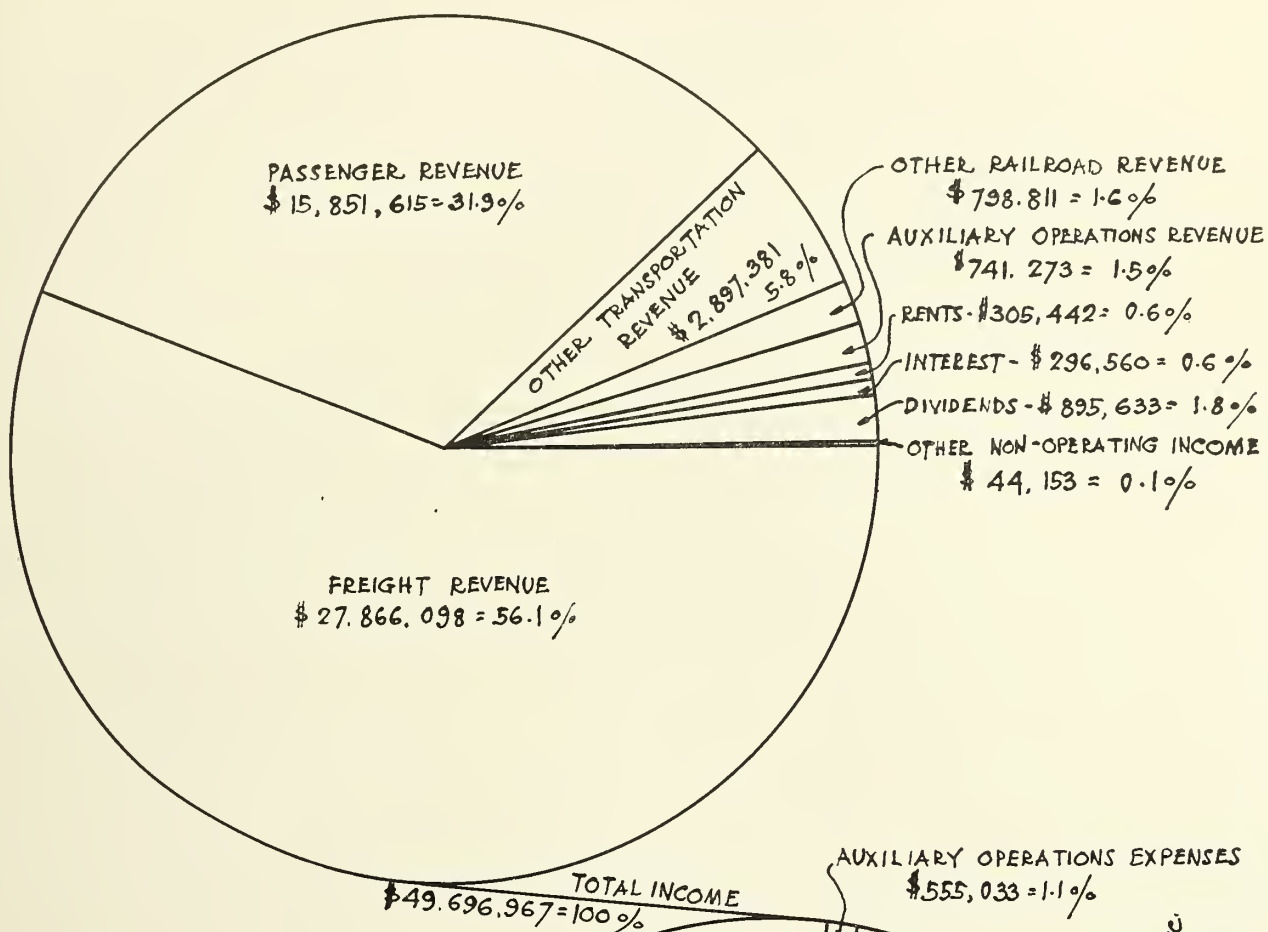 PASSENGER REVENUE
$ 15,851,615=31.9%
OTHER TRANSPORTATION
REVENUE
$ 2.897.381
5.8%
OTHER RAILROAD REVENUE
$ 798.811 = 1.6%
AUXILIARY OPERATIONS REVENUE
$741.273 = 1.5%
RENTS-$305,442= 0.6%
INTEREST- $ 296,560 = 0.6%
DIVIDENDS-$ 895,633= 1.8%
OTHER NON-OPERATING INCOME
$ 44,153 = 0.1%
FREIGHT REVENUE
$ 27.866.098 = 56.1%
TOTAL INCOME
$49.696,967=100%
AUXILIARY OPERATIONS EXPENSES
$555,033=1.1%